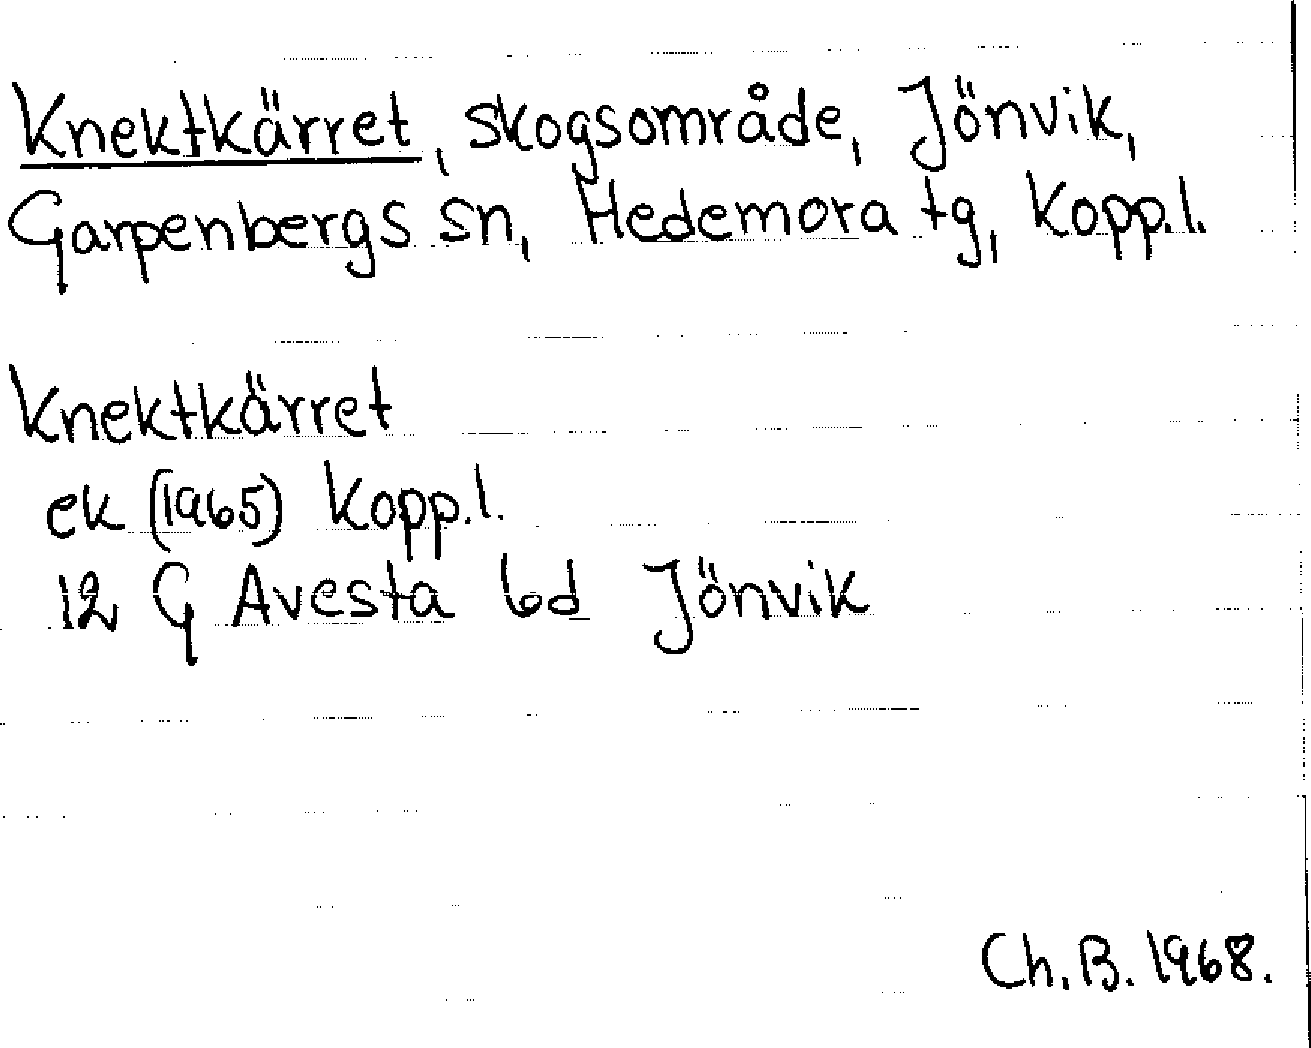 Knektkärret, skogsområde, Jönvik,
Garpenbergs sn, Hedemora tg, Kopp.l.
Knektkärret
ek (1965) Kopp.l.
12 G Avesta 6d Jönvik
Ch.B. 1968.